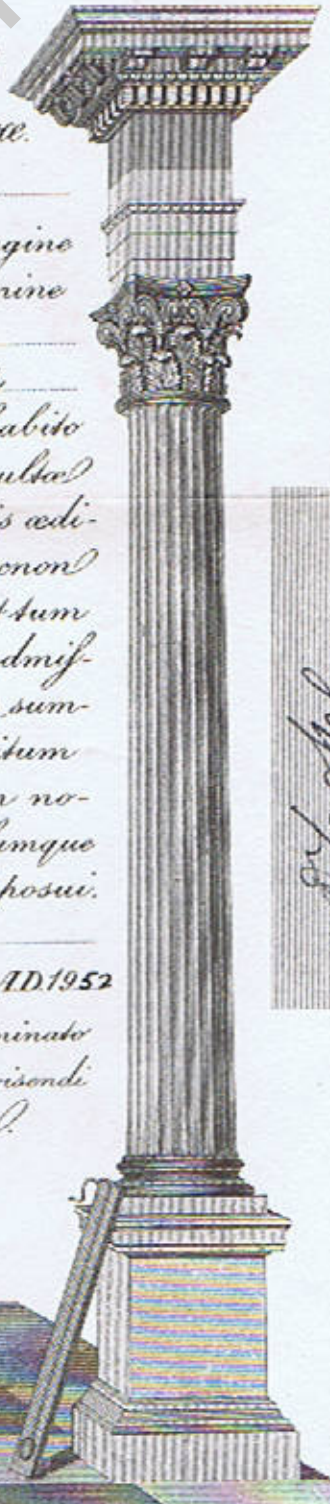 æ.
gine
nine
abito
ultæ
s ædi-
cnon
t tum
dmis-
sum-
itum
n no-
umque
posui.
AD.1952
minato
visendi